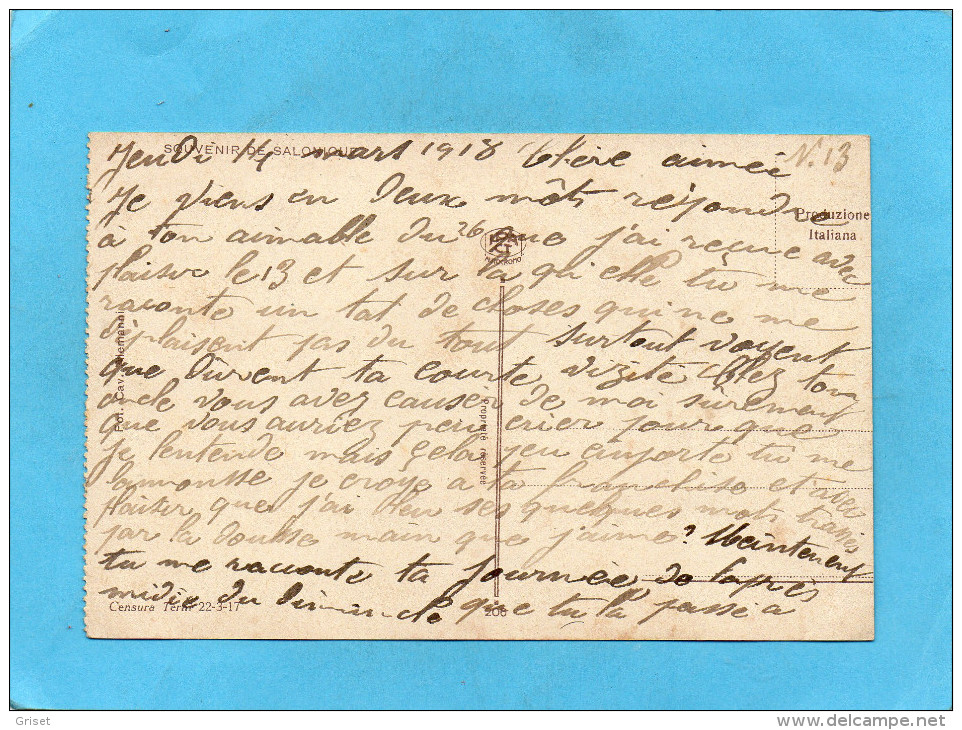 SOUVENIR DE SALONIQUE
Jeudi 14 mars 1918 Chère aimée
N. 13
Je viens en deux môts réjondre
Produzione
Italiana
à ton aimable du 26 que j'ai reçue avec
plaisir le 13 et sur la qu'elle tu me
raconte un tat de choses qui ne me
déplaisent pas du tout surtout voyent
que durent ta courte vizite chez ton
oncle vous avez causer de moi sûrement
que vous auriez peu crier pour que
je lentende mais çela peu emporte tu me
je croye a ta franchise et avec
plaisir que j'ai lieu ses quelques mots tracés
par la doulse main que j'aime? Meintenent
tu me raconte ta journée de laprès
midie du Dimanche que tu la passé a
Fot. Cav. Alemanni
Proprieté réservée
Censura Term 22-3-17
206
Griset
www.delcampe.net